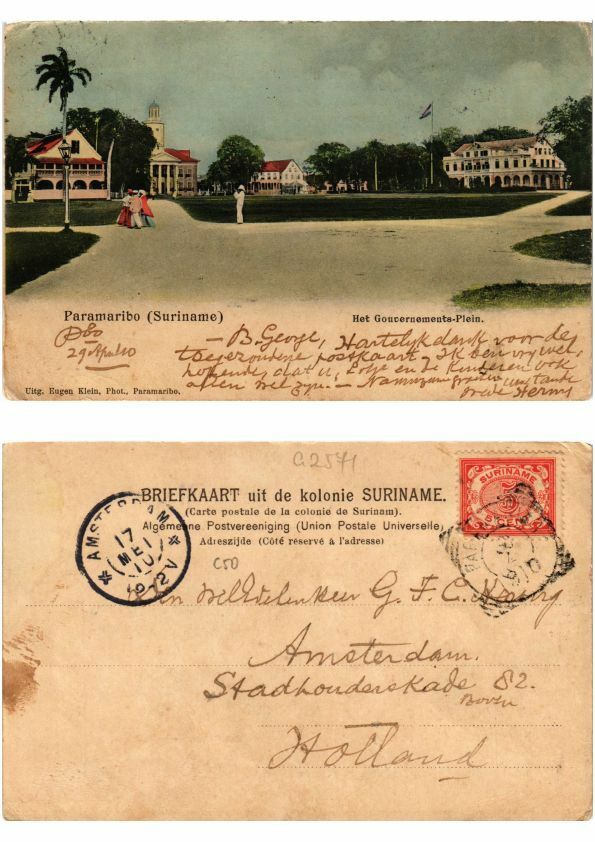 Paramaribo (Suriname)
Het Gouvernements-Plein.
Pbo
29 April 10
— B. George, Hartelijk dank voor de
toegezondene postkaart, Ik ben vrij wel,
hopende, dat u, Lotje en de Kinderen ook
allen wel zijn. — groeten
Uitg. Eugen Klein, Phot., Paramaribo.
G2571
BRIEFKAART uit de kolonie SURINAME.
(Carte postale de la colonie de Surinam).
Algemeene Postvereeniging (Union Postale Universelle)
Adreszijde (Côté réservé à l'adresse)
SURINAME
5
5 CENT
AMSTERDAM
17
MEI
10
C50
Den WelEdelen heer G. F. C.
Amsterdam.
Stadhouderskade 82.
Boven
Holland